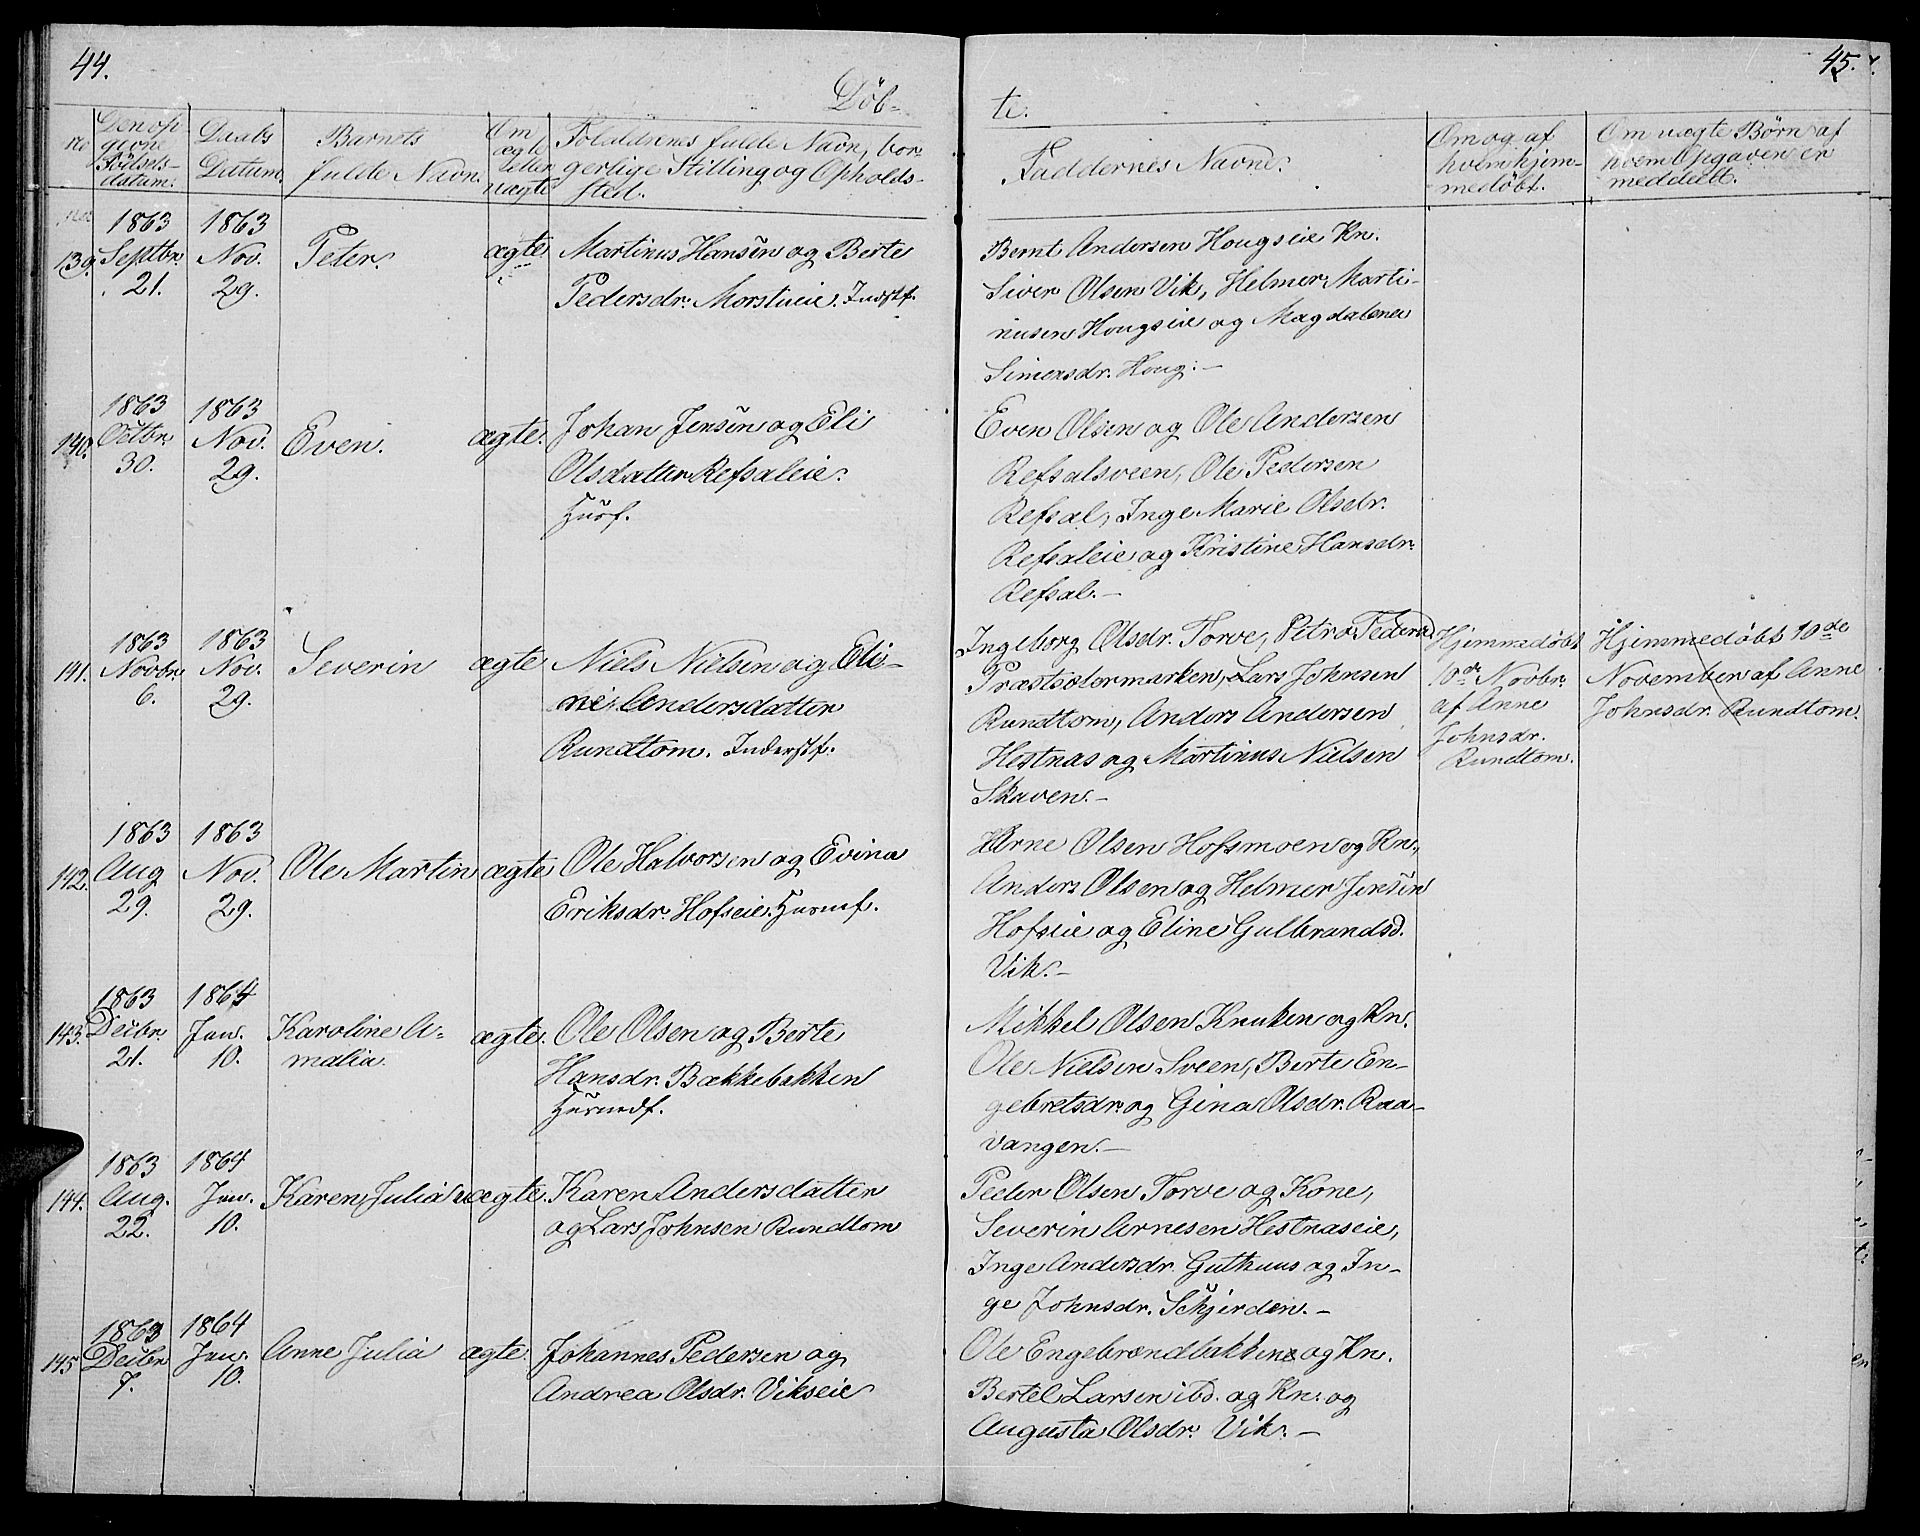 44.
45.
Døb-
te.
No
Den op-
givne
Fødsels-
datum.
Daabs
Datum.
Barnets
fulde Navn.
Om
ægte
eller
uægte
Forældrenes fulde Navn, bor-
gerlige Stilling og Opholds-
sted.
Faddernes Navne.
Om og af
hvem hjem-
medøbt.
Om uægte Børn af
hvem Opgaven er
meddeelt.
139. 1863 Septbr. 21.
1863 Nov. 29.
Peter.
ægte
Martinus Hansen og Berte
Pedersdr. Morstueie. Indstf.
Bernt Andersen Hougseie Kn.
Siver Olsen Vik, Helmer Marti-
nusen Hougseie og Magdalene
Simensdr. Houg. -
140. 1863 Octbr. 30.
1863 Nov. 29.
Even.
ægte.
Johan Jensen og Eli
Olsdatter Refsaleie.
Husf.
Even Olsen og Ole Andersen
Refsalsveen, Ole Pedersen
Refsal, Inge Marie Olsdr.
Refsaleie og Kristine Hansdr.
Refsal. -
141. 1863 Novbr. 6.
1863 Nov. 29.
Severin
ægte
Niels Nielsen og Eli-
ne Andersdatter
Rundtom. Inderstf.
Ingeborg Olsdr. Torve, Petra Pedersd.
Præstsætermarken, Lars Johnsen
Rundtom, Anders Andersen
Hestnas og Martinus Nielsen
Skaven. -
Hjemmedøbt
10de Novbr.
af Anne
Johnsdr.
Rundtom.
Hjemmedøbt 10de
November af Anne
Johnsdr. Rundtom.
142. 1863 Aug 29.
1863 Nov. 29.
Ole Martin
ægte
Ole Halvorsen og Evina
Eriksdr. Hofseie. Husmf.
Arne Olsen Hofsmoen og Kn.,
Anders Olsen og Helmer Jensen
Hofseie og Eline Gulbrandsd.
Vik. -
143. 1863 Decbr. 21.
1864 Jan. 10.
Karoline A-
malia.
ægte.
Ole Olsen og Berte
Hansdr. Bækkebakken
Husmdf.
Mikkel Olsen Knuken og Kn.
Ole Nielsen Sveen, Berte En-
gebretsdr. og Gina Olsdr. Raa-
vangen. -
144. 1863 Aug. 22.
1864 Jan. 10.
Karen Julia
uægte.
Karen Andersdatter
og Lars Johnsen Rundtom
Peder Olsen Torve og Kone,
Severin Arnesen Hestnaseie,
Inge Andersdr. Guthuus og In-
ge Johnsdr. Schjerden. -
145 1863 Decbr 7.
1864 Jan. 10.
Anne Julia
ægte.
Johannes Pedersen og
Andrea Olsdr. Vikseie
Ole Engebrændbakken og Kn.
Bertel Larsen ibd. og Kn. og
Augusta Olsdr. Vik. -